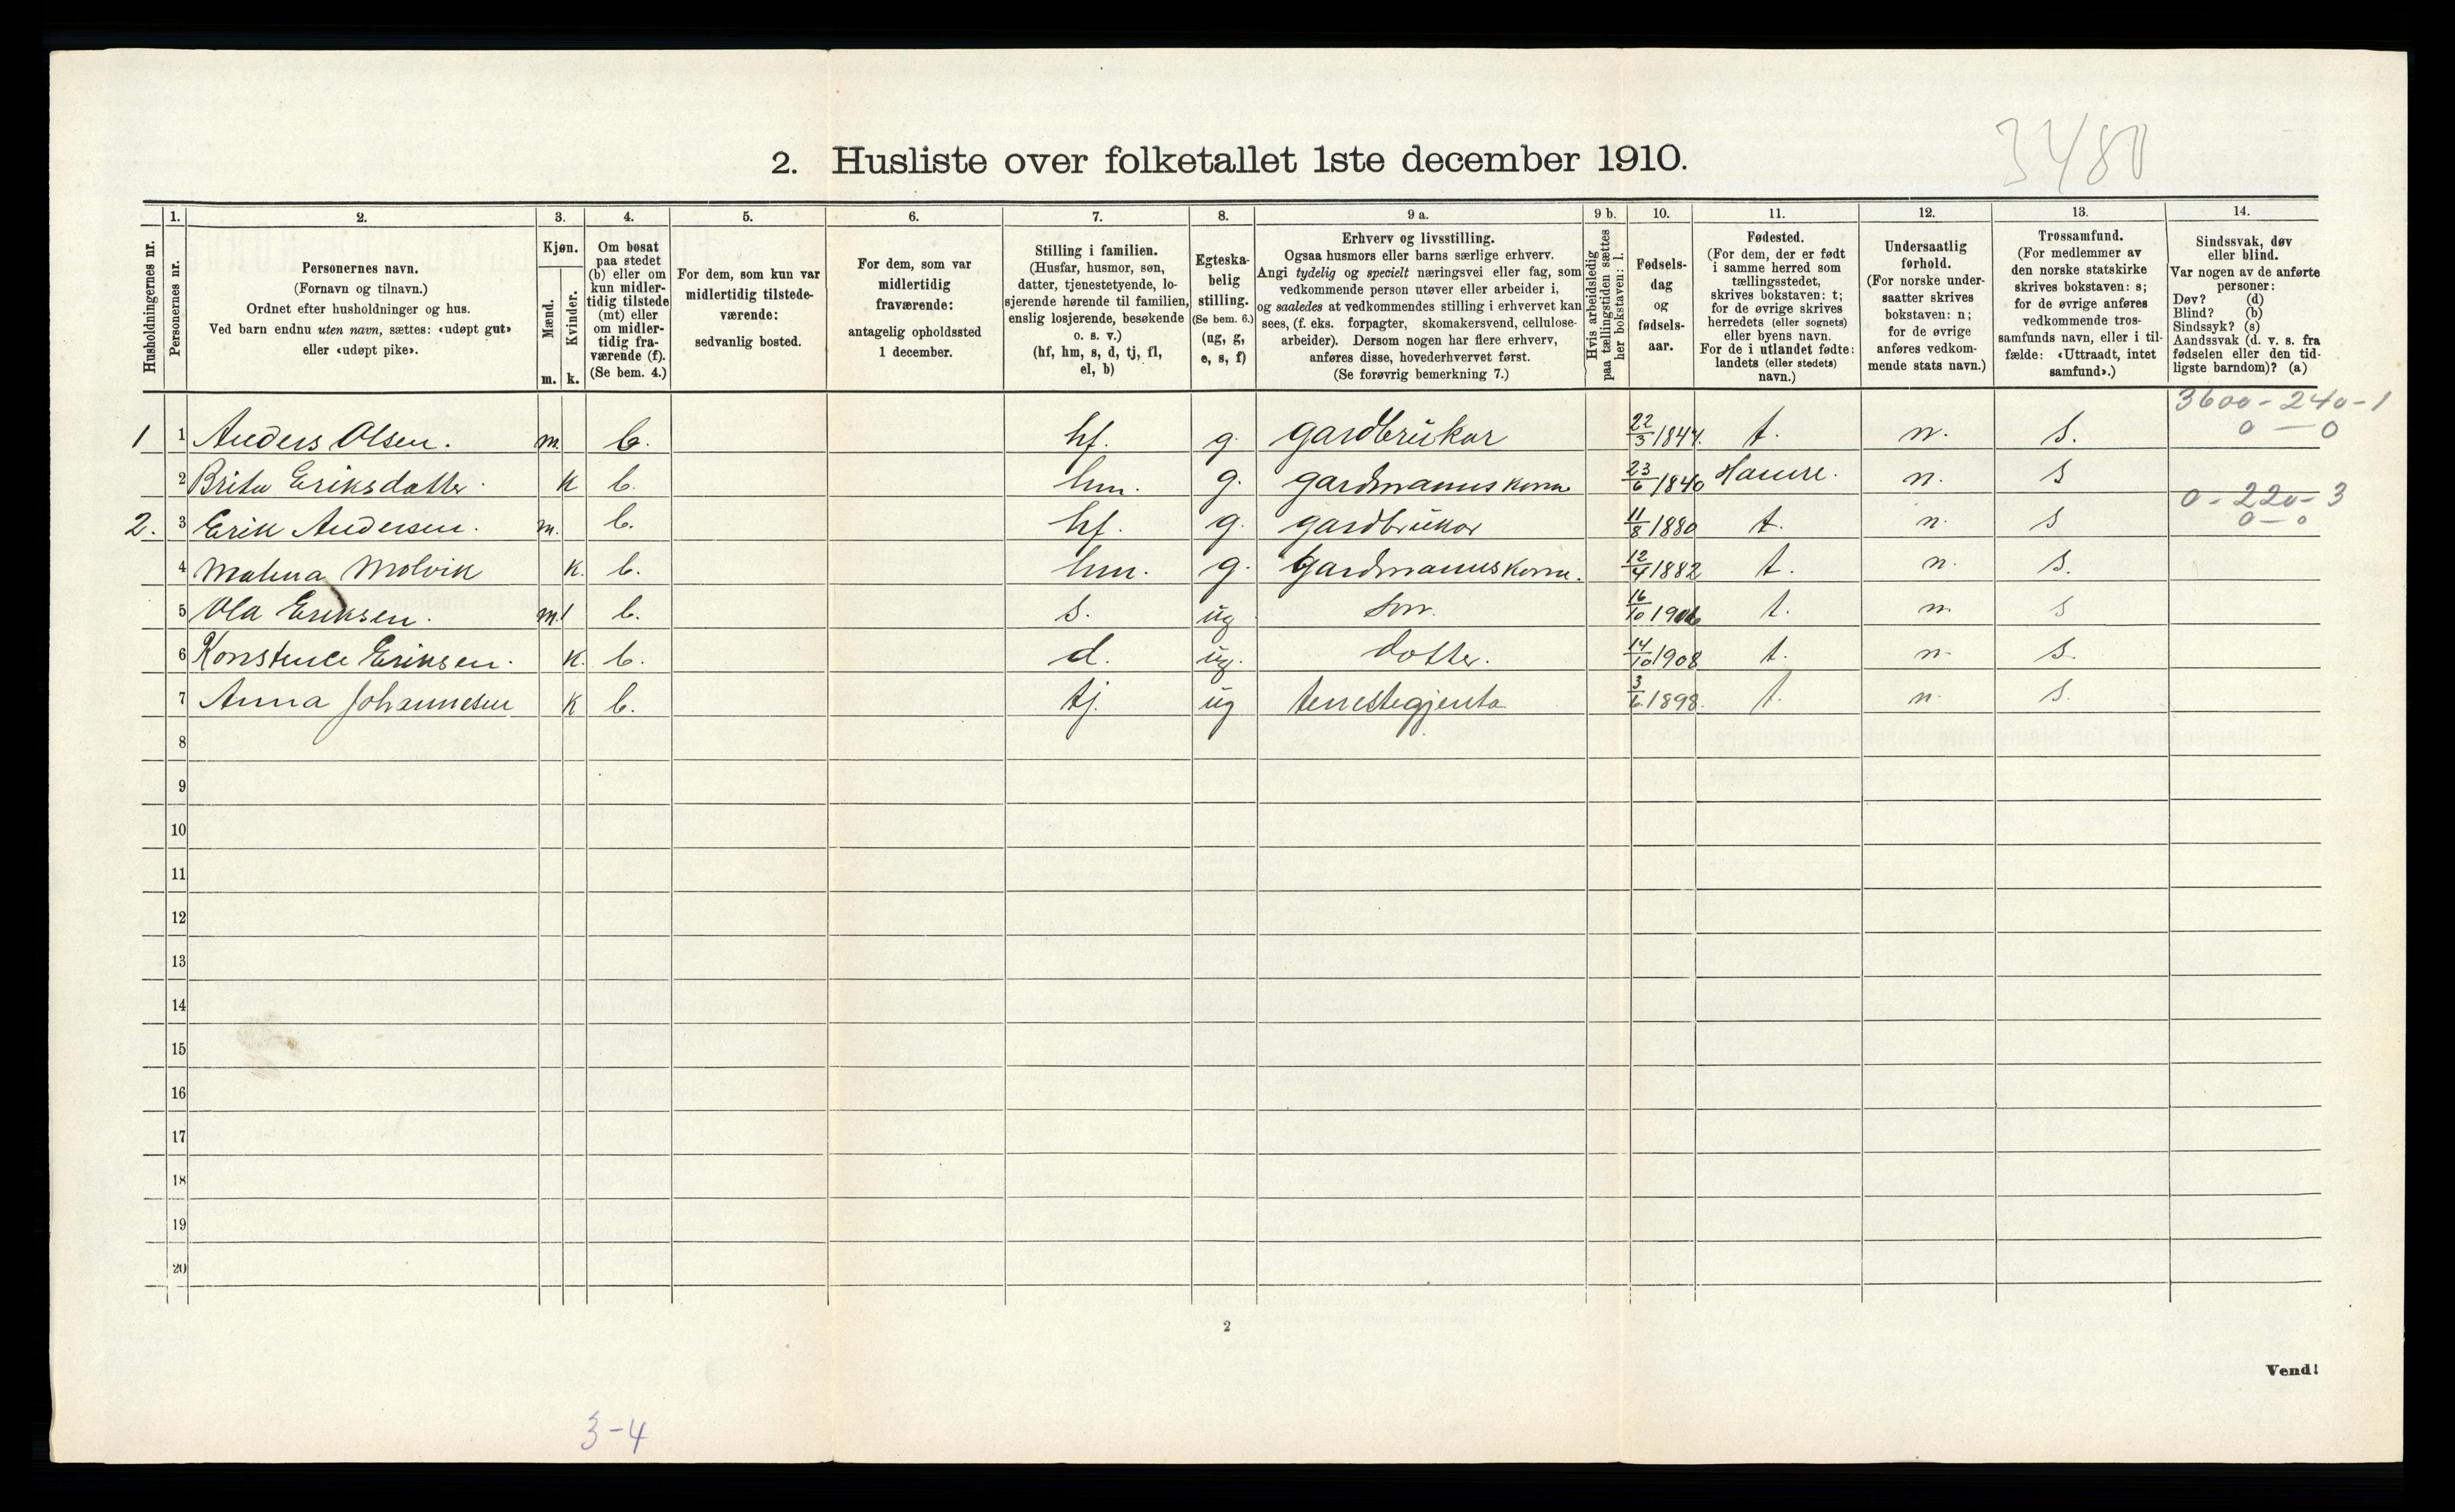 3480
2. Husliste over folketallet 1ste december 1910.
Husholdningernes nr.
1.
Personernes nr.
2.
Personernes navn.
(Fornavn og tilnavn.)
Ordnet efter husholdninger og hus.
Ved barn endnu uten navn, sættes: «udøpt gut»
eller «udøpt pike».
3.
Kjøn.
Mænd.
Kvinder.
m. k.
4.
Om bosat
paa stedet
(b) eller om
kun midler-
tidig tilstede
(mt) eller
om midler-
tidig fra-
værende (f).
(Se bem. 4.)
5.
For dem, som kun var
midlertidig tilstede-
værende:
sedvanlig bosted.
6.
For dem, som var
midlertidig
fraværende:
antagelig opholdssted
1 december.
7.
Stilling i familien.
(Husfar, husmor, søn,
datter, tjenestetyende, lo-
sjerende hørende til familien,
enslig losjerende, besøkende
o. s. v.)
(hf, hm, s, d, tj, fl,
el, b)
8.
Egteska-
belig
stilling.
(Se bem. 6.)
(ug, g,
e, s, f)
9 a.
Erhverv og livsstilling.
Ogsaa husmors eller barns særlige erhverv.
Angi tydelig og specielt næringsvei eller fag, som
vedkommende person utøver eller arbeider i,
og saaledes at vedkommendes stilling i erhvervet kan
sees, (f. eks. forpagter, skomakersvend, cellulose-
arbeider). Dersom nogen har flere erhverv,
anføres disse, hovederhvervet først.
(Se forøvrig bemerkning 7.)
9 b.
Hvis arbeidsledig
paa tællingstiden sættes
her bokstaven: l.
10.
Fødsels-
dag
og
fødsels-
aar.
11.
Fødested.
(For dem, der er født
i samme herred som
tællingsstedet,
skrives bokstaven: t;
for de øvrige skrives
herredets (eller sognets)
eller byens navn.
For de i utlandet fødte:
landets (eller stedets)
navn.)
12.
Undersaatlig
forhold.
(For norske under-
saatter skrives
bokstaven: n;
for de øvrige
anføres vedkom-
mende stats navn.)
13.
Trossamfund.
(For medlemmer av
den norske statskirke
skrives bokstaven: s;
for de øvrige anføres
vedkommende tros-
samfunds navn, eller i til-
fælde: «Uttraadt, intet
samfund».)
14.
Sindssvak, døv
eller blind.
Var nogen av de anførte
personer:
Døv? (d)
Blind? (b)
Sindssyk? (s)
Aandssvak (d. v. s. fra
fødselen eller den tid-
ligste barndom)? (a)
3600 - 240 - 1
1 1 Anders Olsen. m. b. hf. g. gardbrukar 22/3 1844. t. n. s. 0 — 0
2 Brita Eriksdatter. k b. hm. g. gardmannskona 23/6 1840 Hamre. n. s
0 - 220 - 3
2. 3 Erik Andersen. m. b. hf. g. gardbrukar 11/8 1880 t. n. s 0 - 0
4 Malena Molvik k. b. hm. g. gardmannskona. 12/4 1882 t. n. s.
5 Ola Eriksen. m. b. s. ug son. 16/10 1906 t. n. s
6 Konstence Eriksen. k. b. d. ug. dotter. 14/10 1908 t. n. s.
7 Anna Johannesen k b. tj. ug tenestegjenta 3/6 1898. t. n. s.
8
9
10
11
12
13
14
15
16
17
18
19
20
2
Vend!
3-4